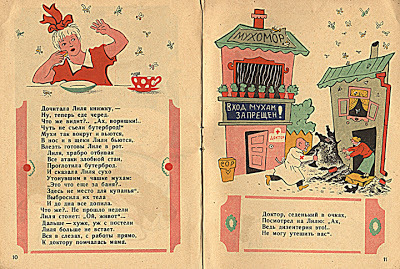 Дочитала Лиля книжку,—
Ну, теперь еде черед.
Что же видит?.. „Ах, воришки!..
Чуть не съели бутерброд!"
Мухи так вокруг и вьются,
В нос и в щеки Лили бьются,
Влезть готовы Лиле в рот.
Лиля, храбро отбивая
Все атаки злобной стаи,
Проглотила бутерброд.
И сказала Лиля сухо
Утонувшим в чашке мухам:
„Это что еще за баня?..
Здесь не место для купанья".
Выбросила их тела
И до дна все допила.
Что ж?.. Не прошло недели
Лиля стонет: „Ой, живот"...
Дальше—хуже, уж с постели
Лиля больше не встает.
Вся в слезах, с работы прямо,
К доктору помчалась мама.
10
МУХОМОР
ВХОД МУХАМ
ЗАПРЕЩЕН!
ДОКТОР
СОР
Доктор, седенький в очках,
Посмотрел на Лилю: „Ах,
Ведь дизентерия это!..
Не могу утешить вас".
11